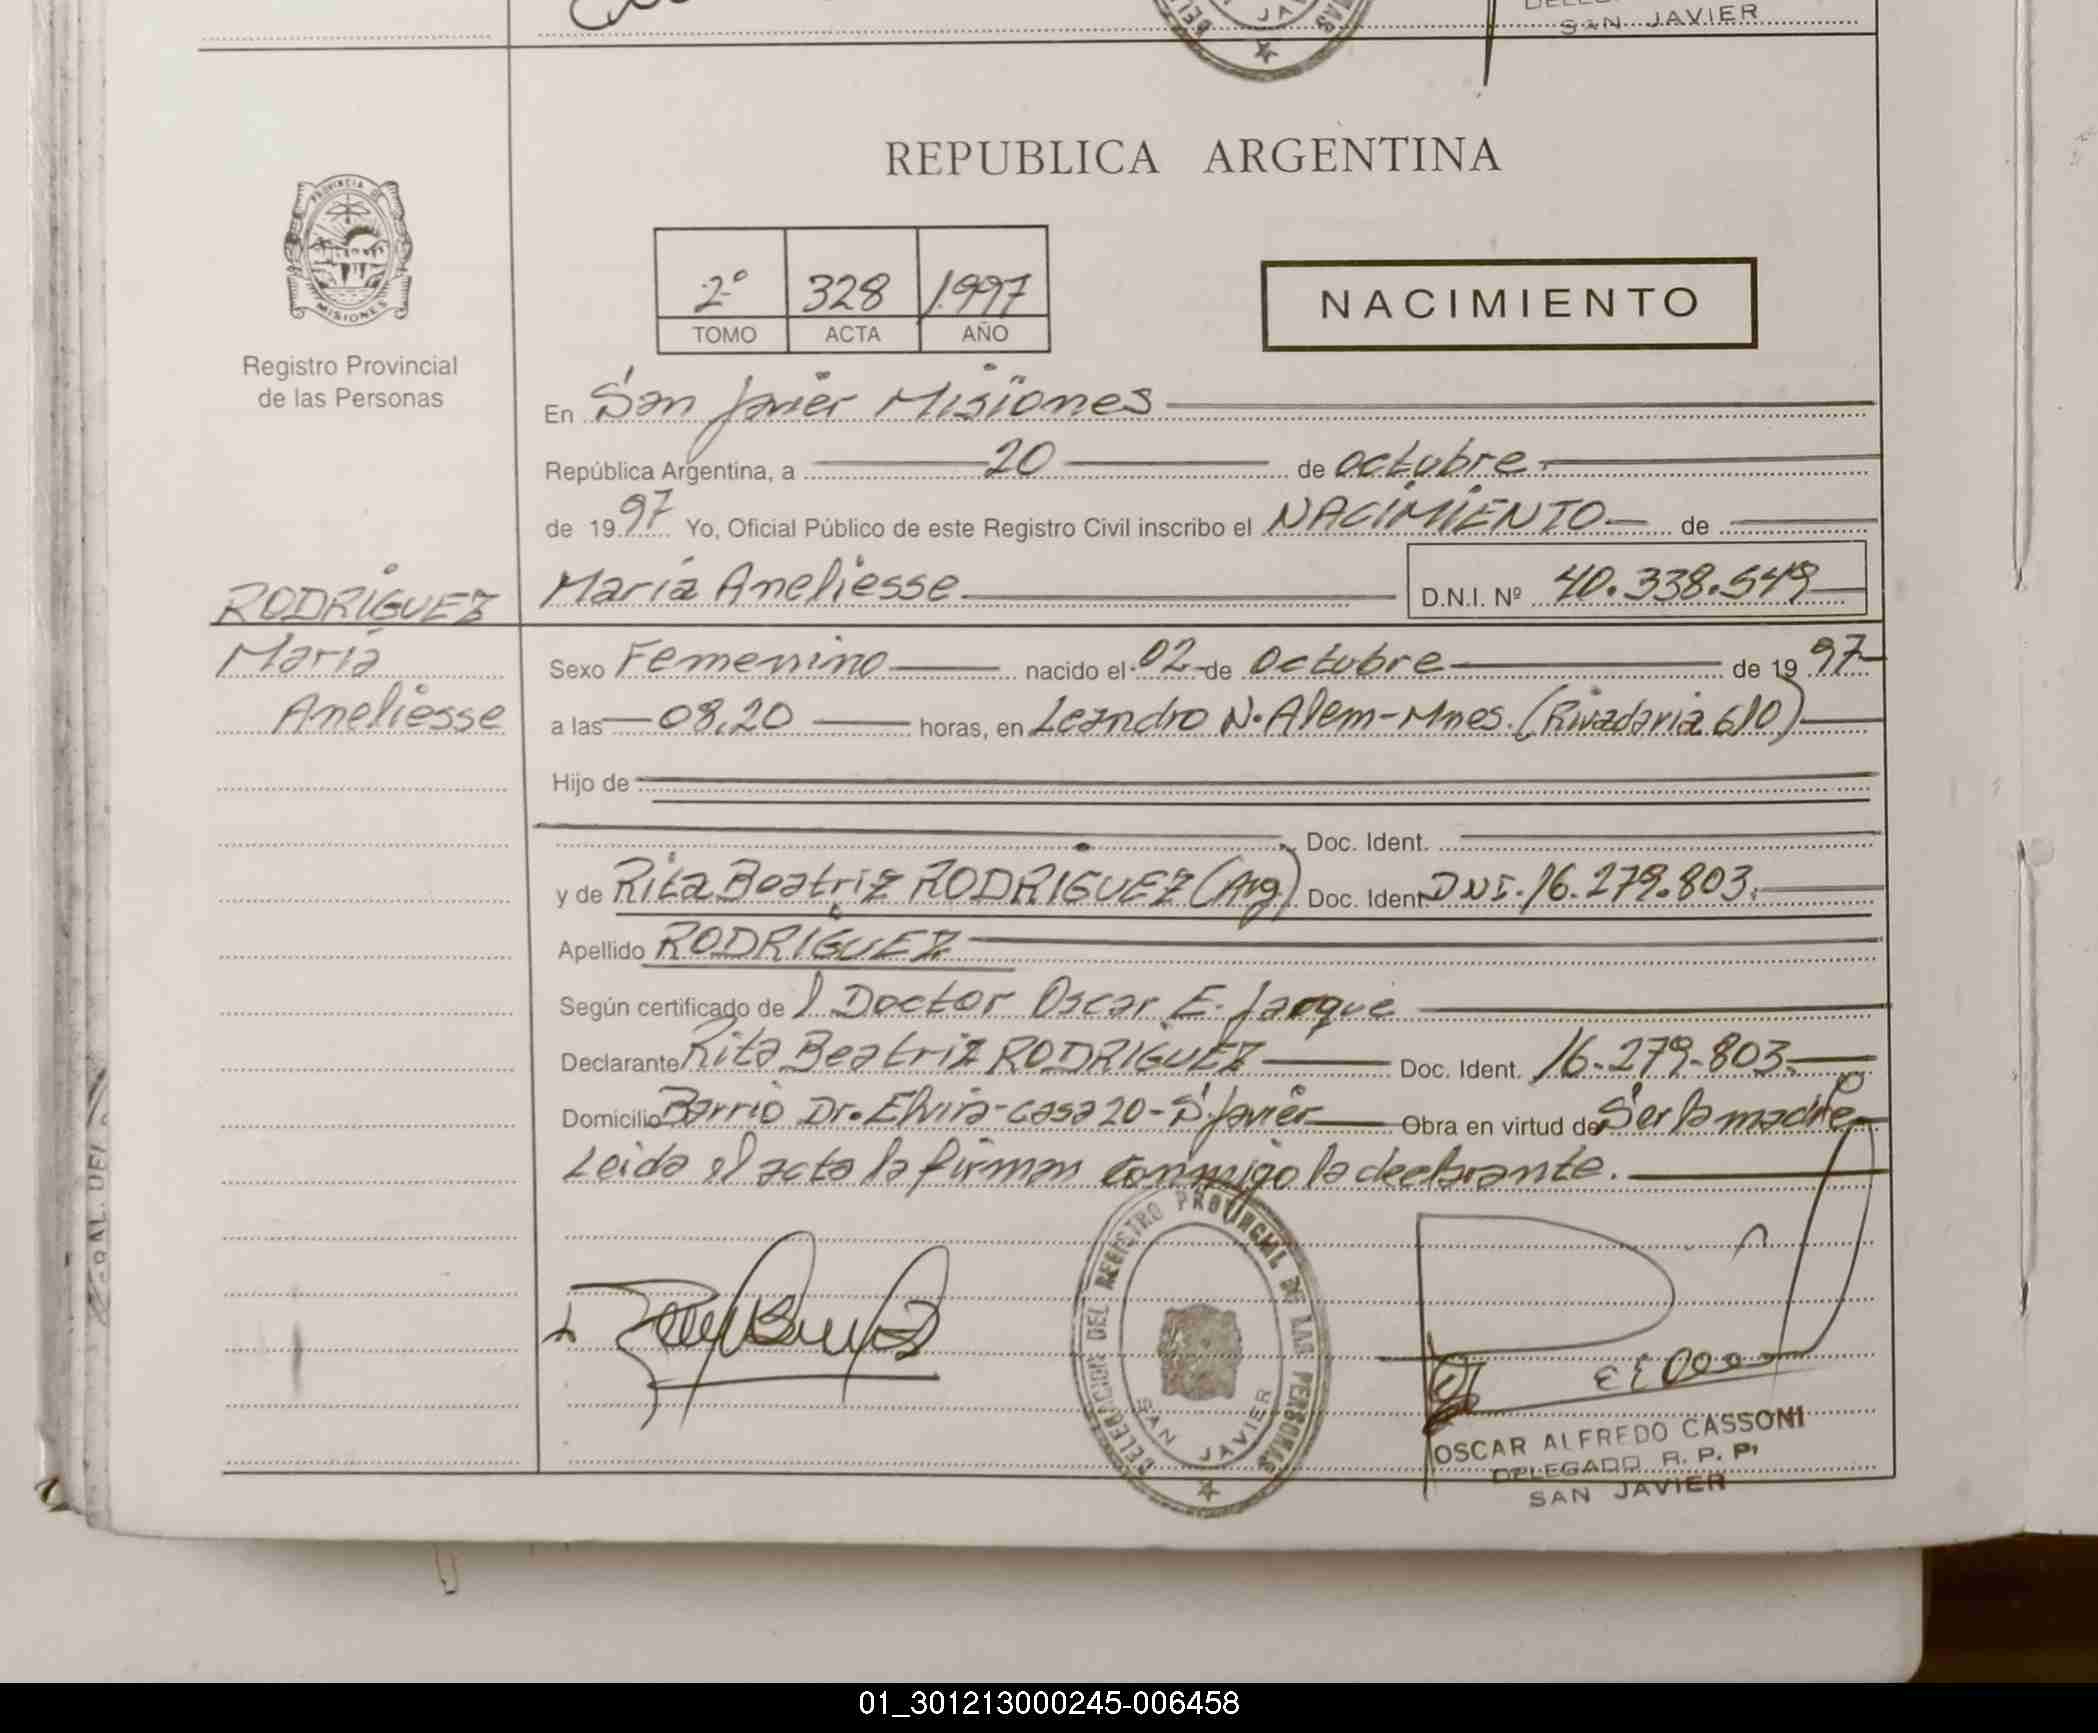 SAN JAVIER
REPUBLICA ARGENTINA
PROVINCIA DE
MISIONES
Registro Provincial
de las Personas
2º 328 1997
TOMO ACTA AÑO
NACIMIENTO
En San Javier Misiones
República Argentina, a 20 de octubre
de 1997 Yo, Oficial Público de este Registro Civil inscribo el NACIMIENTO de
RODRIGUEZ María Aneliesse D.N.I. Nº 40.338.549
María
Aneliesse
Sexo Femenino nacido el 02 de Octubre de 1997
a las 08,20 horas, en Leandro N. Alem-Mnes. (Rivadavia 610)
Hijo de
Doc. Ident.
y de Rita Beatriz RODRIGUEZ (Arg) Doc. Ident DNI. 16.279.803.
Apellido RODRIGUEZ
Según certificado de l Doctor Oscar E. Jarque
Declarante Rita Beatriz RODRIGUEZ Doc. Ident. 16.279.803.
Domicilio Barrio Dr. Elvira-casa 20-S. Javier Obra en virtud de Ser la madre
Leida el acta la firman conmigo la declarante.
DELEGACION DEL REGISTRO PROVINCIAL DE LAS PERSONAS
SAN JAVIER
OSCAR ALFREDO CASSONI
DELEGADO R. P. P.
SAN JAVIER
01_301213000245-006458